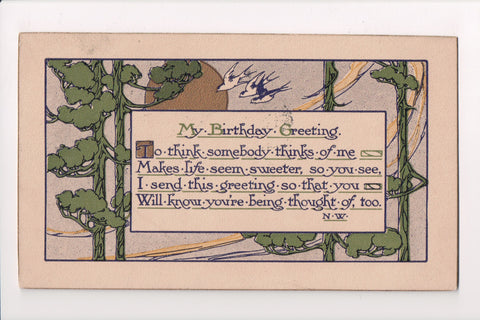 My·Birthday·Greeting.
To·think·somebody·thinks·of·me
Makes·life·seem·sweeter,·so·you·see,
I·send·this·greeting·so·that·you
Will·know·you're·being·thought·of,·too.
N.W.